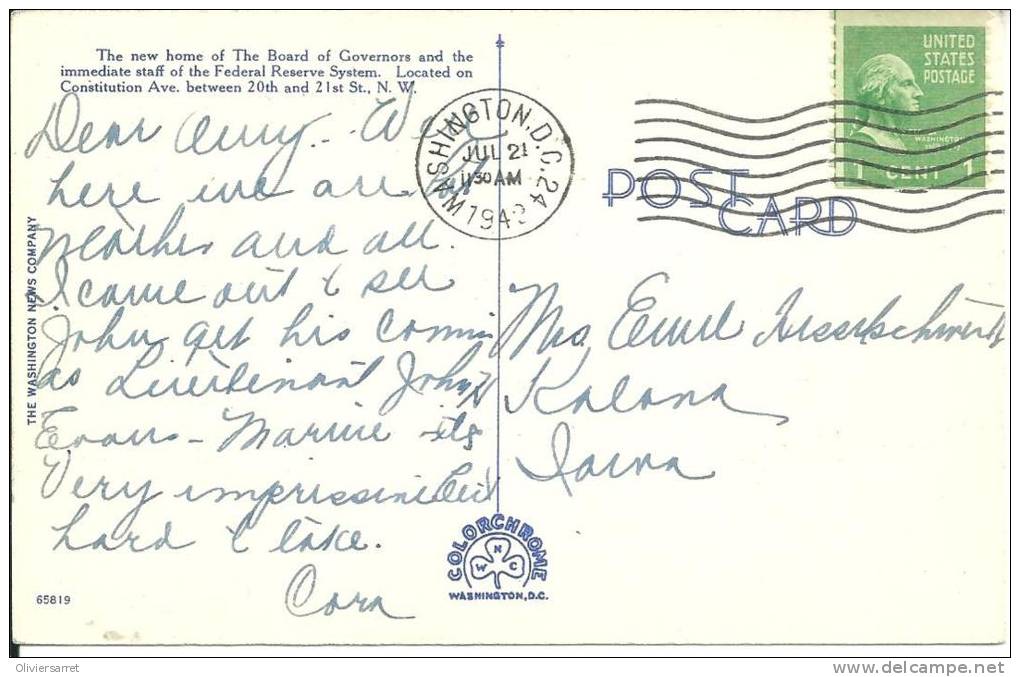 The new home of The Board of Governors and the
immediate staff of the Federal Reserve System. Located on
Constitution Ave. between 20th and 21st St., N. W.
UNITED
STATES
POSTAGE
WASHINGTON
1 CENT 1
WASHINGTON, D.C. 24
JUL 21
11 30 AM
194
POST
CARD
THE WASHINGTON NEWS COMPANY
Dear Amy. - Well
here we are
Mother and all.
I came out to see
John get his
as Lieutenant John
Evans - Marine its
Very impressive but
hard to take.
Cora
Mrs Emil
Kalona
Iowa
COLORCHROME
N
W C
WASHINGTON, D.C.
65819
Oliviersarret
www.delcampe.net